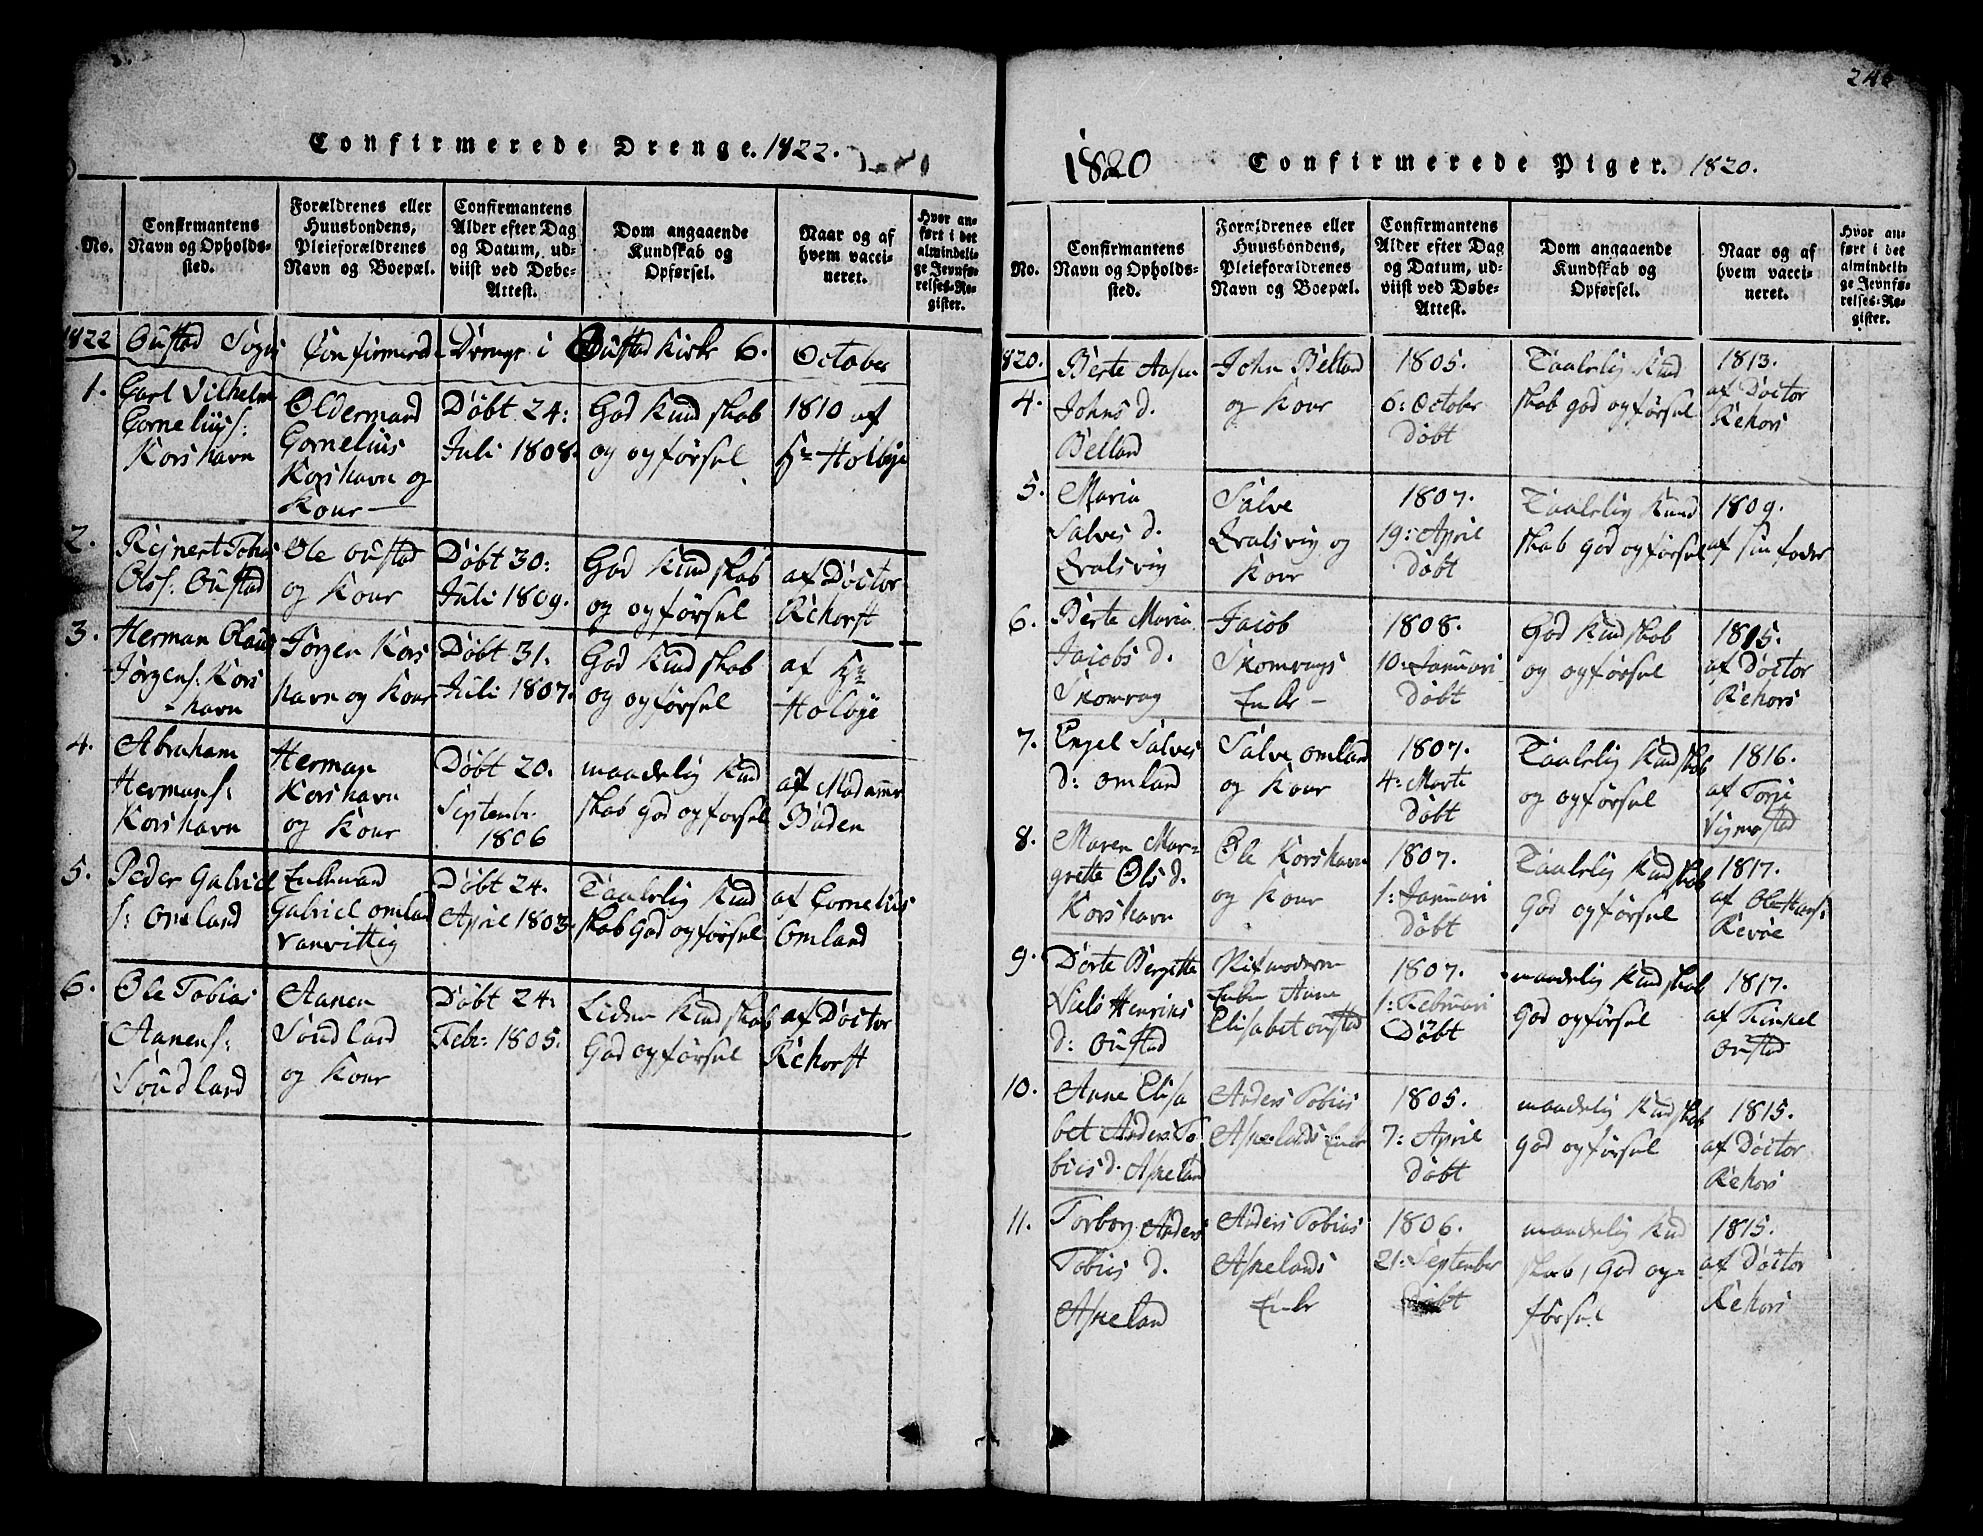 Confirmerede Drenge. 1822.
No.
Confirmantens
Navn og Opholds-
sted.
Forældrenes eller
Huusbondens,
Pleieforældrenes
Navn og Boepæl.
Confirmantens
Alder efter Dag
og Datum, ud-
viist ved Døbe-
Attest.
Dom angaaende
Kundskab og
Opførsel.
Naar og af
hvem vacci-
neret.
Hvor an-
ført i det
almindeli-
ge Jevnfø-
relses-Re-
gister.
1822 Oustad Sogn Confirmerede Drenge i Oustad Kirke 6. October
1.
Carl Vilhelm
Corneliuss:
Korshavn
Oldermand
Cornelius
Korshavn og
Kone
Døbt 24:
Juli 1808.
God Kundskab
og opførsel
1810 af
Hr Holbye
2.
Rejnert Tobias
Olss: Oustad
Ole Oustad
og Kone
Døbt 30:
Juli 1809.
God Kundskab
og opførsel
af Doctor
Rehorst
3.
Herman Olaus
Jørgens: Kors
havn
Jørgen Kors
havn og Kone
Døbt 31.
Juli 1807.
God Kundskab
og opførsel
af Hr
Holbye
4.
Abraham
Hermans:
Korshavn
Herman
Korshavn
og Kone
Døbt 20.
Septembr.
1806
maadelig Kund
skab god opførsel
af Madamme
Buden
5.
Peder Gabriel
s: Omland
Enkemand
Gabriel Omland
vanvittig
Døbt 24.
April 1803.
Taalelig Kund
skab God opførsel
af Cornelius
Omland
6.
Ole Tobias
Aanens:
Søudland
Aanen
Søudland
og Kone
Døbt 24:
Febr: 1805.
Liden Kundskab
God opførsel
af Doctor
Rehorst
1820 Confirmerede Piger. 1820.
No.
Confirmantens
Navn og Opholds-
sted.
Forældrenes eller
Huusbondens,
Pleieforældrenes
Navn og Boepæl.
Confirmantens
Alder efter Dag
og Datum, ud-
viist ved Døbe-
Attest.
Dom angaaende
Kundskab og
Opførsel.
Naar og af
hvem vacci-
neret.
Hvor an-
ført i det
almindeli-
ge Jevnfø-
relses-Re-
gister.
820.
4.
Berte Aase
Johns d.
Belland
John Belland
og Kone
1805.
6: October
Døbt
Taalelig Kund
skab god opførsel
1813.
af Doctor
Rehors
5.
Maria
Salves d.
Qvalsvig
Salve
Qvalsvig og
Kone
1807.
19: April
Døbt
Taalelig Kund
skab God opførsel
1809.
af sin fader
6.
Berte Maria
Jacobs d.
Skomrag
Jacob
Skomrags
Enke
1808.
10: Januari
Døbt
God Kundskab
og opførsel
1815.
af Doctor
Rehors
7.
Engel Salves
d: Omland
Salve Omland
og Kone
1807.
4: Marts
Døbt
Taalelig Kundskab
og opførsel
1816.
af Torje
Vigmostad
8.
Maren Mar-
grette Ols d.
Korshavn
Ole Korshavn
og Kone
1807.
1: Januari
Døbt
Taalelig Kundskab
God opførsel
1817.
af Ole Hans:
Revøe
9.
Dorte Bergitte
Niels Henriks
d: Oustad
Enke Anne
Elisabet Oustad
1807.
1: Februari
Døbt
maadelig Kundskab
God opførsel
1817.
af Tinkel
Oustad
10.
Anne Elisa
bet Anders To
bias d. Aspeland
Anders Tobias
Aspelands Enke
1805.
7: April
Døbt
maadelig Kundskab
God opførsel
1815.
af Doctor
Rehors
11.
Torborg Anders
Tobias d.
Aspeland
Anders Tobias
Aspelands
Enke
1806.
21: September
Døbt
maadelig Kund
skab, God op-
førsel
1815.
af Doctor
Rehors